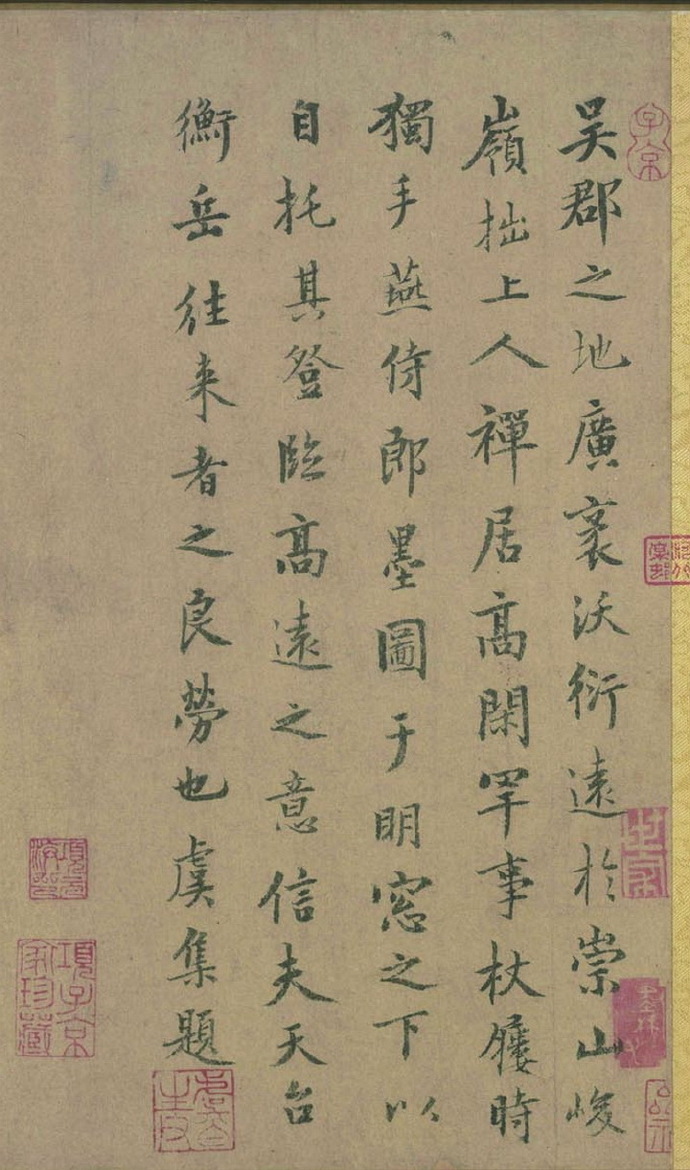 吴郡之地廣袤沃衍遠於崇山峻
嶺拙上人禪居高閑罕事杖屨時
獨手燕侍郎墨圖于明窓之下以
自托其登臨高遠之意信夫天台
衡岳往来者之良勞也虞集題
子京
項子京
家珍藏